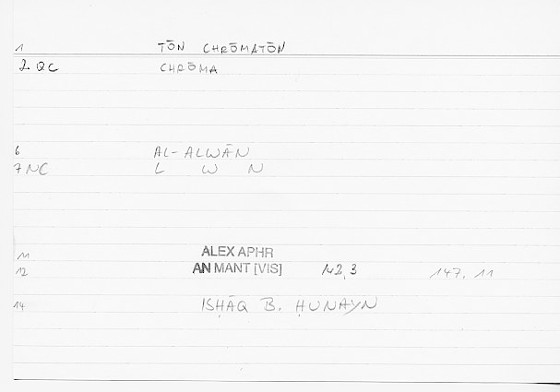 1 TŌN CHRŌMATŌN
2 QC CHRŌMA
6 AL-ALWĀN
7 NC L W N
11 ALEX APHR
12 AN MANT [VIS] 142, 3 147, 11
14 ISḤĀQ B. ḤUNAYN